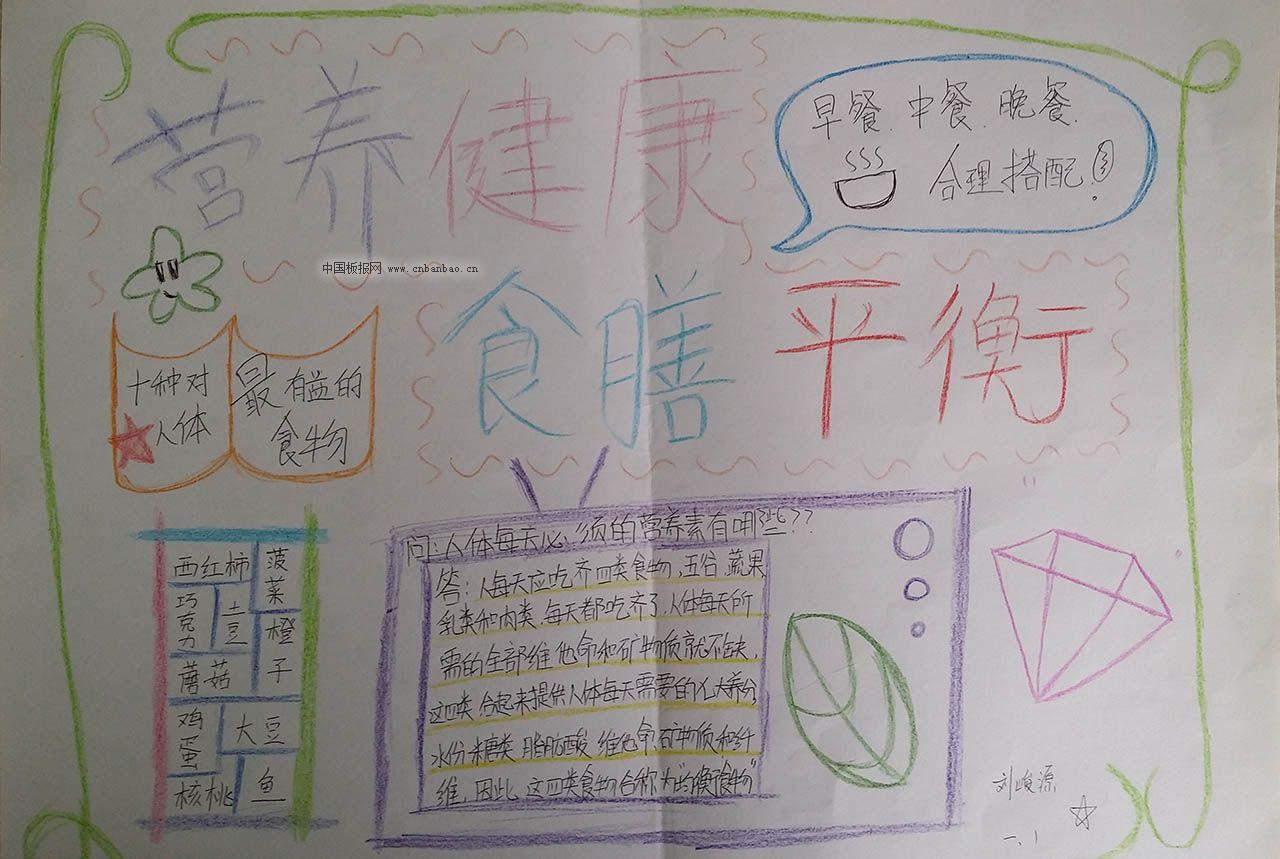 营养健康
早餐、中餐、晚餐、
合理搭配!
中国板报网 www.cnbanbao.cn
食膳平衡
十种对
人体
最有益的
食物
问:人体每天必须的营养素有哪些??
答:人每天应吃齐四类食物,五谷、蔬果
乳类和肉类、每天都吃齐了、人体每天所
需的全部维他命和矿物质就不缺,
这四类合起来提供人体每天需要的七大养分,
水份、糖类、脂肪酸、维他命、矿物质和纤
维,因此、这四类食物合称为“均衡食物”
西红柿
菠菜
巧克力
土豆
橙子
蘑菇
鸡蛋
大豆
核桃
鱼
刘峻源
一、1